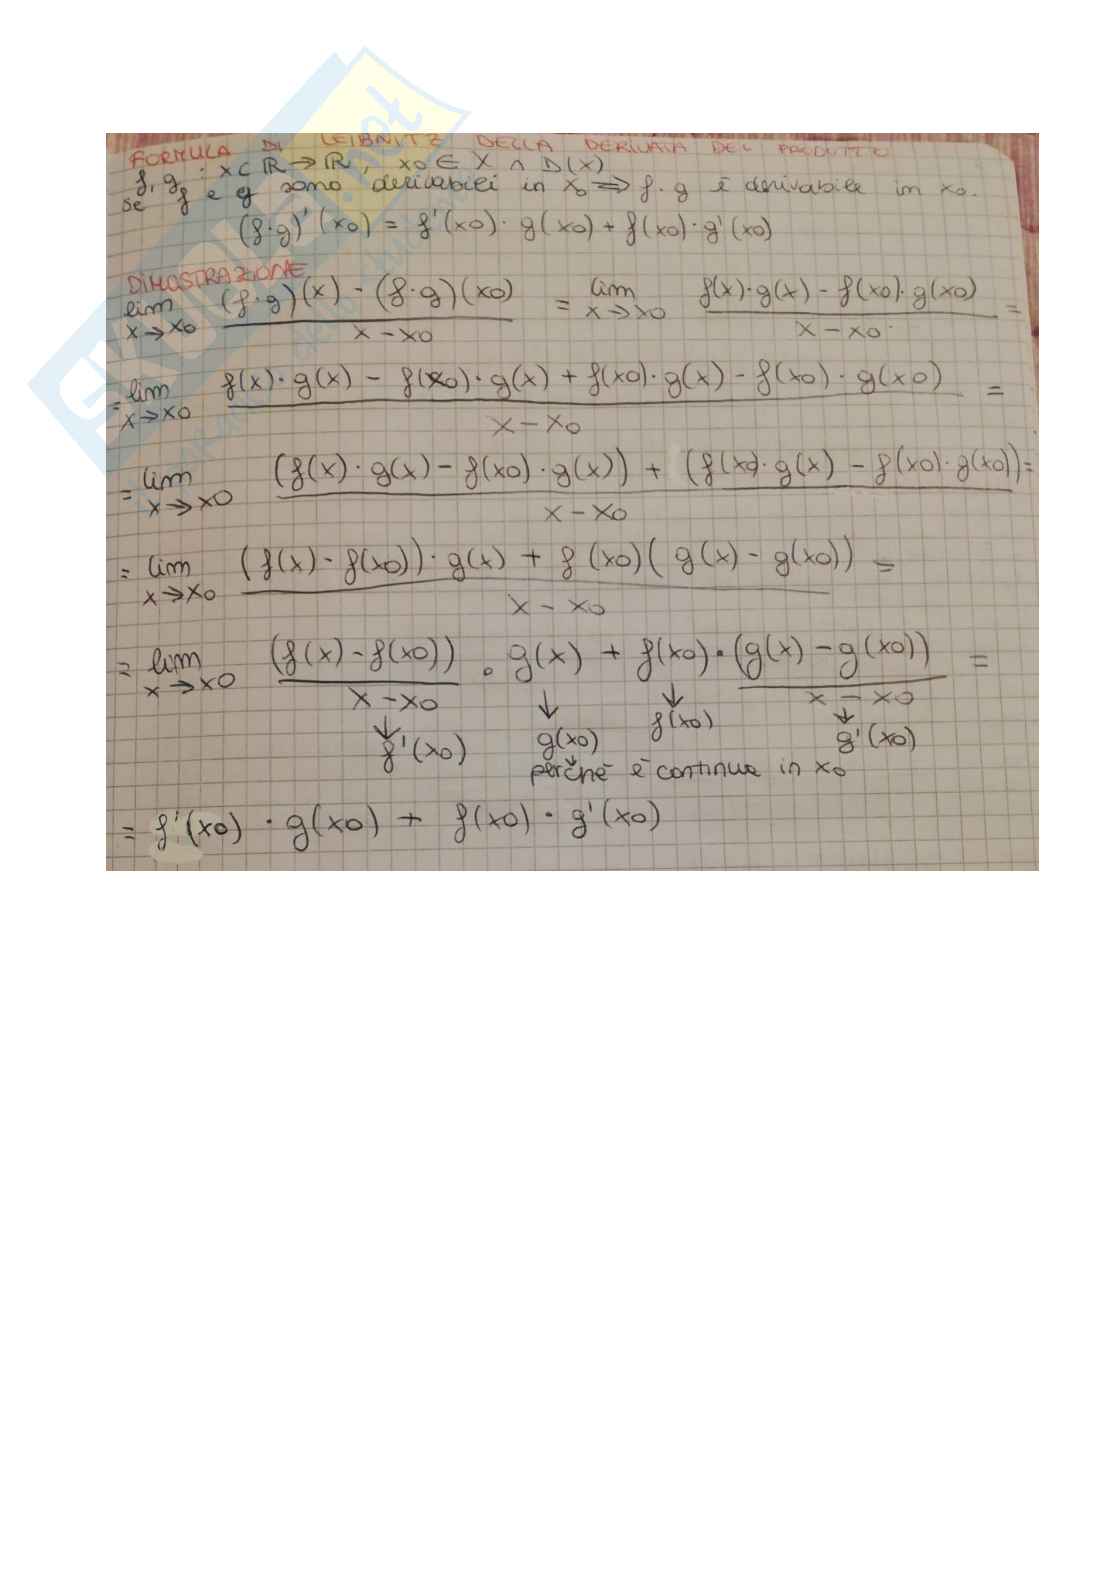 FORMULA DI LEIBNITZ DELLA DERIVATA DEL PRODOTTO
f, g : X ⊂ ℝ → ℝ, x0 ∈ X ∩ D(X)
se f e g sono derivabili in x0 ⟹ f·g è derivabile in x0.
(f·g)'(x0) = f'(x0)·g(x0) + f(x0)·g'(x0)
DIMOSTRAZIONE
lim x→x0 (f·g)(x) - (f·g)(x0) / x - x0 = lim x→x0 f(x)·g(x) - f(x0)·g(x0) / x - x0 =
= lim x→x0 f(x)·g(x) - f(x0)·g(x) + f(x0)·g(x) - f(x0)·g(x0) / x - x0 =
= lim x→x0 (f(x)·g(x) - f(x0)·g(x)) + (f(x0)·g(x) - f(x0)·g(x0)) / x - x0 =
= lim x→x0 (f(x) - f(x0))·g(x) + f(x0)(g(x) - g(x0)) / x - x0 =
= lim x→x0 (f(x) - f(x0)) / x - x0 · g(x) + f(x0)·(g(x) - g(x0)) / x - x0 =
↓ f'(x0) ↓ g(x0) ↓ f(x0) ↓ g'(x0)
perché è continua in x0
= f'(x0)·g(x0) + f(x0)·g'(x0)